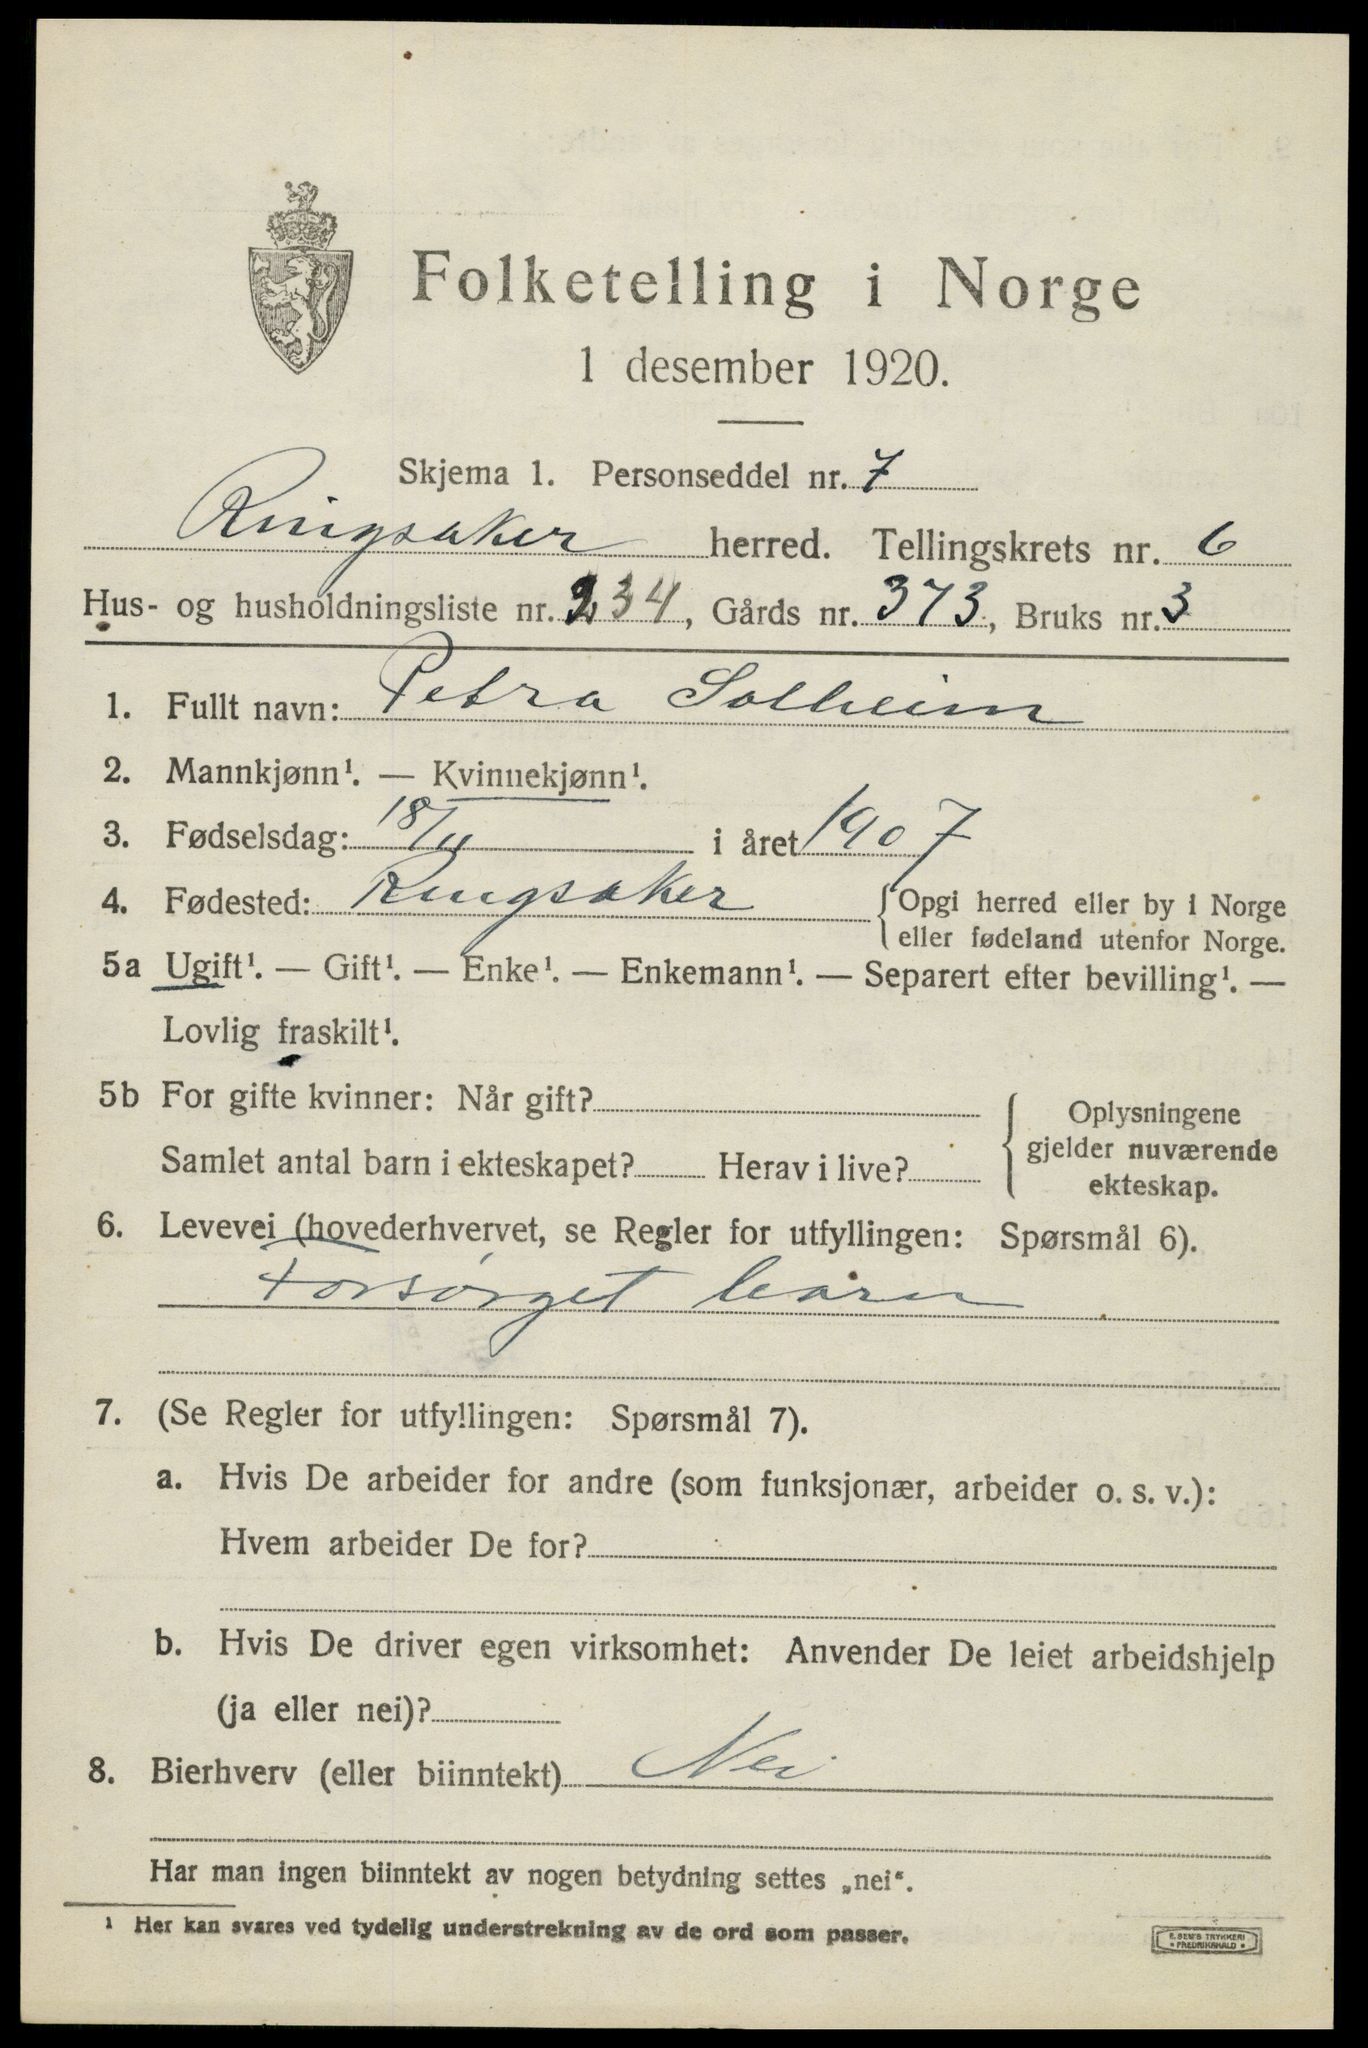 Folketelling i Norge
1 desember 1920.
Skjema 1. Personseddel nr. 7
Ringsaker herred. Tellingskrets nr. 6
Hus- og husholdningsliste nr. 234, Gårds nr. 373, Bruks nr. 3
1. Fullt navn: Petra Solheim
2. Mannkjønn¹. — Kvinnekjønn¹.
3. Fødselsdag: 18/11 i året 1907
4. Fødested: Ringsaker {Opgi herred eller by i Norge
eller fødeland utenfor Norge.
5a Ugift¹. — Gift¹. — Enke¹. — Enkemann¹. — Separert efter bevilling¹. —
Lovlig fraskilt¹.
5b For gifte kvinner: Når gift? Oplysningene
gjelder nuværende
Samlet antal barn i ekteskapet? Herav i live?
ekteskap.
6. Levevei (hovederhvervet, se Regler for utfyllingen: Spørsmål 6).
Forsørget barn
7. (Se Regler for utfyllingen: Spørsmål 7).
a. Hvis De arbeider for andre (som funksjonær, arbeider o. s. v.):
Hvem arbeider De for?
b. Hvis De driver egen virksomhet: Anvender De leiet arbeidshjelp
(ja eller nei)?
8. Bierhverv (eller biinntekt) Nei
Har man ingen biinntekt av nogen betydning settes „nei“.
¹ Her kan svares ved tydelig understrekning av de ord som passer.
E. SEM'S TRYKKERI
FREDRIKSHALD